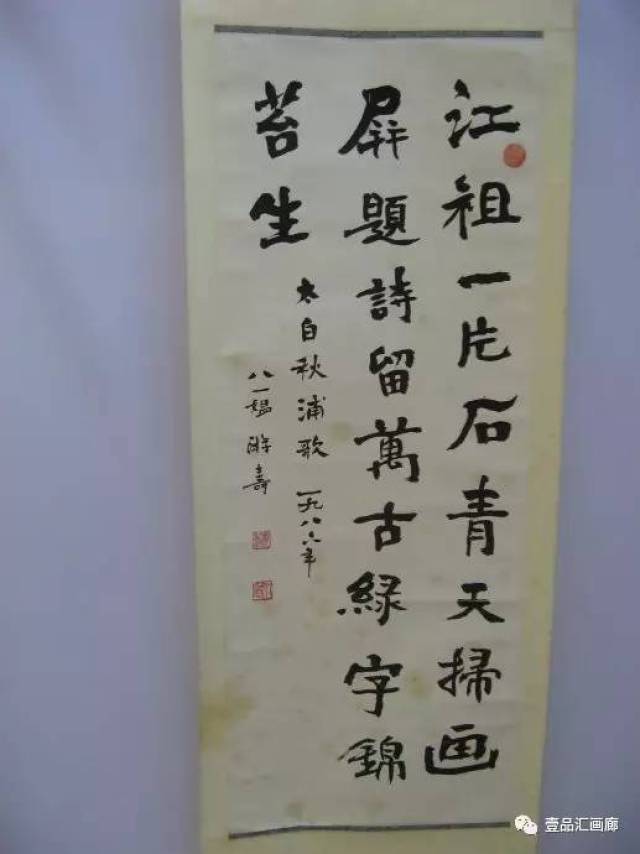 江祖一片石青天掃画
屏題詩留萬古緑字錦
苔生
太白秋浦歌 一九八六年
八一媪游壽
壹品汇画廊